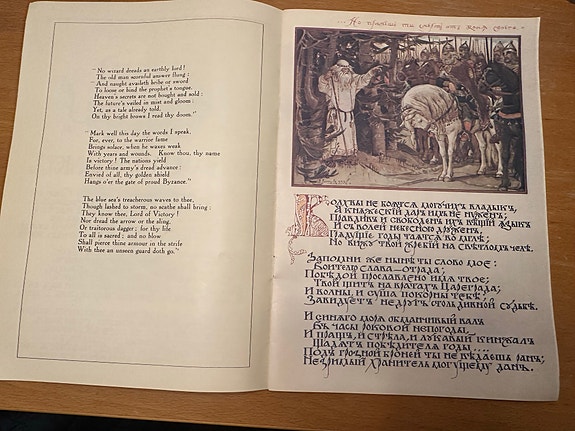 "No wizard dreads an earthly lord!
The old man scornful answer flung:
"And naught availeth bribe or sword
To loose or bind the prophet's tongue.
Heaven's secrets are not bought and sold:
The future's veiled in mist and gloom:
Yet, as a tale already told,
On thy bright brows I read thy doom."
"Mark well this day the words I speak,
For, ever, to the warrior fame
Brings solace, when he waxes weak
With years and wounds. Know thou, thy name
Is victory! The nations yield
Before thine army's dread advance:
Envied of all, thy golden shield
Hangs o'er the gate of proud Byzance."
The blue sea's treacherous waves to thee,
Though lashed to storm, no scathe shall bring:
They know thee, Lord of Victory!
Nor dread the arrow or the sling,
Or traitorous dagger: for thy life
To all is sacred; and no blow
Shall pierce thine armour in the strife
With thee an unseen guard doth go."
...Но примешь ты смерть отъ коня своего.
Волхвы не боятся могучихъ владыкъ,
А княжескiй даръ имъ не нуженъ;
Правдивъ и свободенъ ихъ вѣщiй языкъ
И съ волей небесною друженъ.
Грядущiе годы таятся во мглѣ;
Но вижу твой жребiй на свѣтломъ челѣ.
Запомни же нынѣ ты слово мое:
Воителю слава — отрада;
Побѣдой прославлено имя твое;
Твой щитъ на вратахъ Цареграда;
И волны, и суша покорны тебѣ;
Завидуетъ недругъ столь дивной судьбѣ.
И синяго моря обманчивый валъ
Въ часы роковой непогоды,
И пращъ, и стрѣла, и лукавый кинжалъ
Щадятъ побѣдителя годы...
Подъ грозной броней ты не вѣдаешь ранъ;
Незримый хранитель могущему данъ.